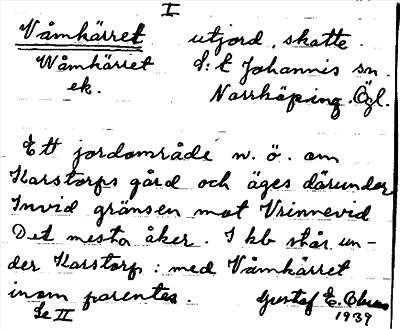 I
Våmkärret utjord, skatte
Wåmkärret S:t Johannis sn.
ek. Norrköping. Ögl.
Ett jordområde n. ö. om
Karstorps gård och äges därunder
Invid gränsen mot Vrinnevid
Det mesta åker. I kb står un-
der Karstorp: med Våmkärret
inom parentes. Gustaf E.
Se II 1939